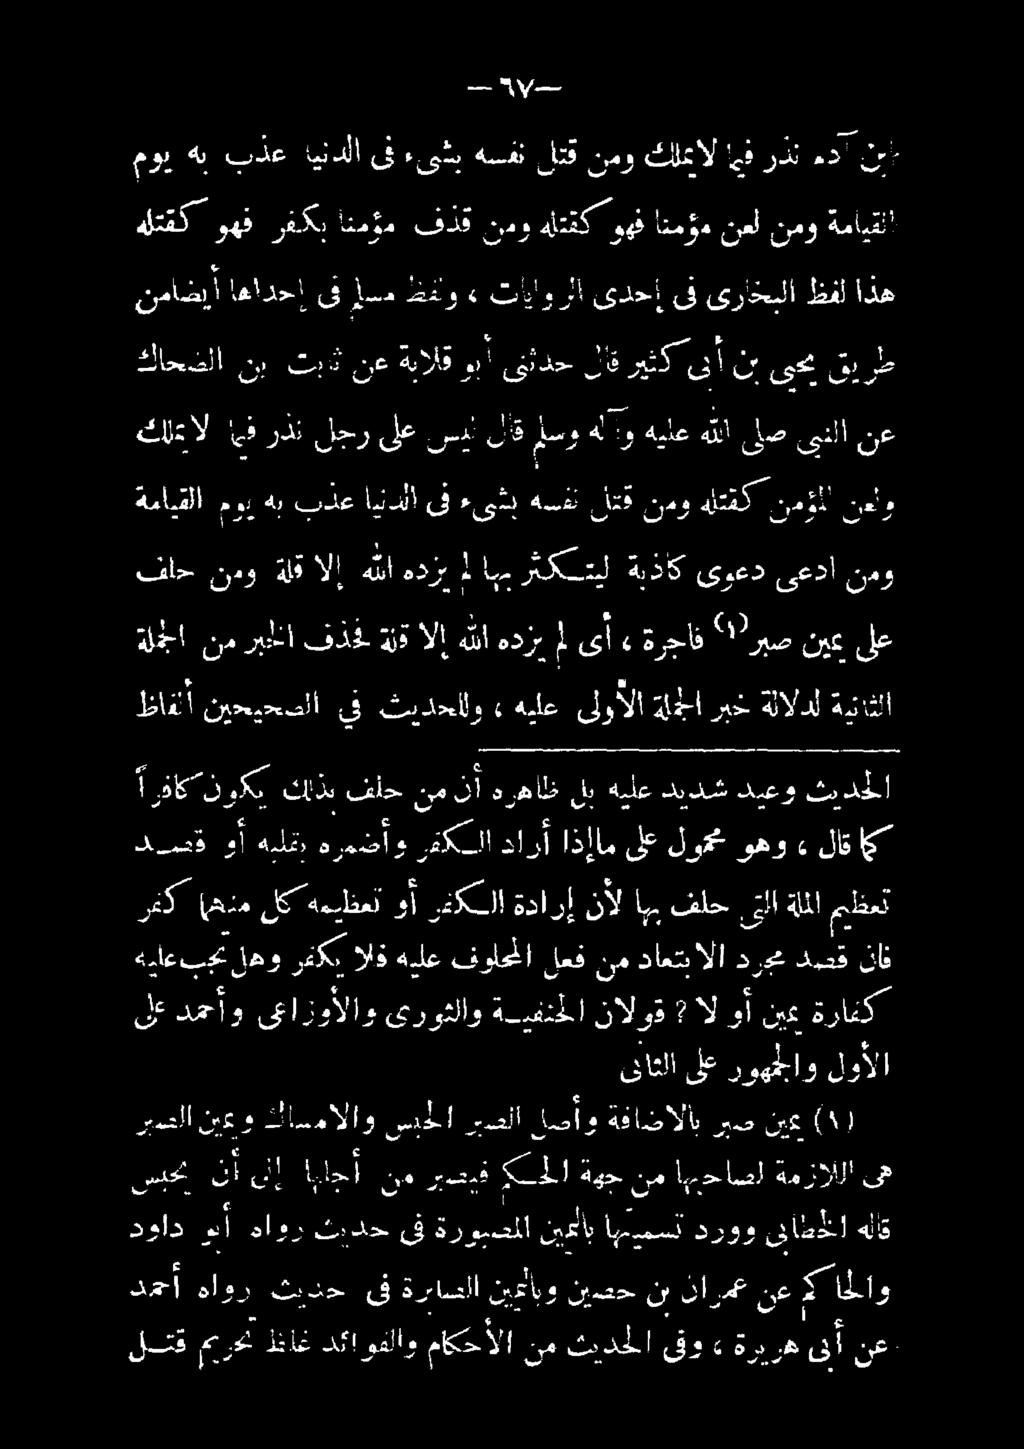 —٦٧—
ابن آدم نذر فيما لايملك ومن قتل نفسه بشىء فى الدنيا عذب به يوم
القيامة ومن لعن مؤمنا فهو كقتله ومن قذف مؤمنا بكفر فهو كقتله
هذا لفظ البخارى فى إحدى الروايات ، ولفظ مسلم فى إحداها أيضامن
طريق يحيى بن أبى كثير قال حدثنى أبو قلابة عن ثابت بن الضحاك
عن النبى صلى الله عليه وآله وسلم قال ليس على رجل نذر فيما لايملك
ولعن المؤمن كقتله ومن قتل نفسه بشىء فى الدنيا عذب به يوم القيامة
ومن ادعى دعوى كاذبة ليتكثر بها لم يزده الله إلا قلة ومن حلف
على يمين صبر(١) فاجرة ، أى لم يزده الله إلا قلة فحذف الخبر من الجملة
الثانية لدلالة خبر الجملة الأولى عليه ، وللحديث في الصحيحين ألفاظ
الحديث وعيد شديد عليه بل ظاهره أن من حلف بذلك يكون كافراً
كما قال ، وهو محمول على ماإذا أراد الكفر وأضمره بقلبه أو قصد
تعظيم الملة التى حلف بها لأن إرادة الكفر أو تعظيمه كل منهما كفر
فان قصد مجرد الابتعاد من فعل المحلوف عليه فلا يكفر وهل تجب عليه
كفارة يمين أو لا ? قولان الحنفية والثورى والأوزاعى وأحمد على
الأول والجمهور على الثانى
(١) يمين صبر بالاضافة وأصل الصبر الحبس والامساك ويمين الصبر
هى اللازمة لصاحبها من جهة الحكم فيصبر من أجلها إلى أن يحبس
قاله الخطابى وورد تسميتها باليمين المصبورة فى حديث رواه أبو داود
والحاكم عن عمران بن حصين وباليمين الصابرة فى حديث رواه أحمد
عن أبى هريرة ، وفى الحديث من الأحكام والفوائد غلظ تحريم قتل